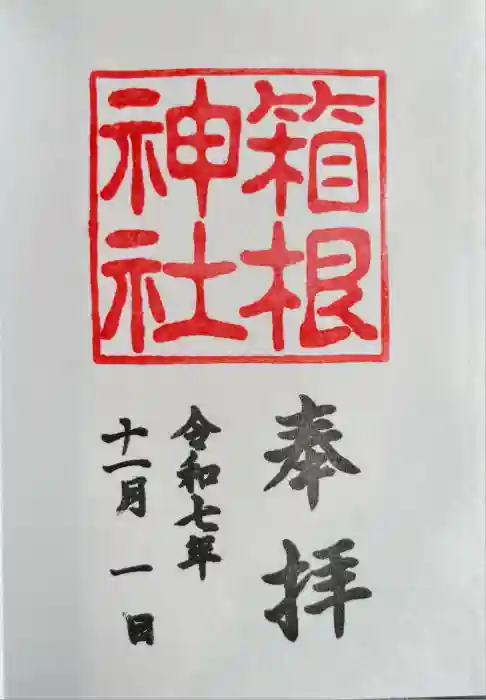 箱根
神社
奉拝
令和七年
十一月一日